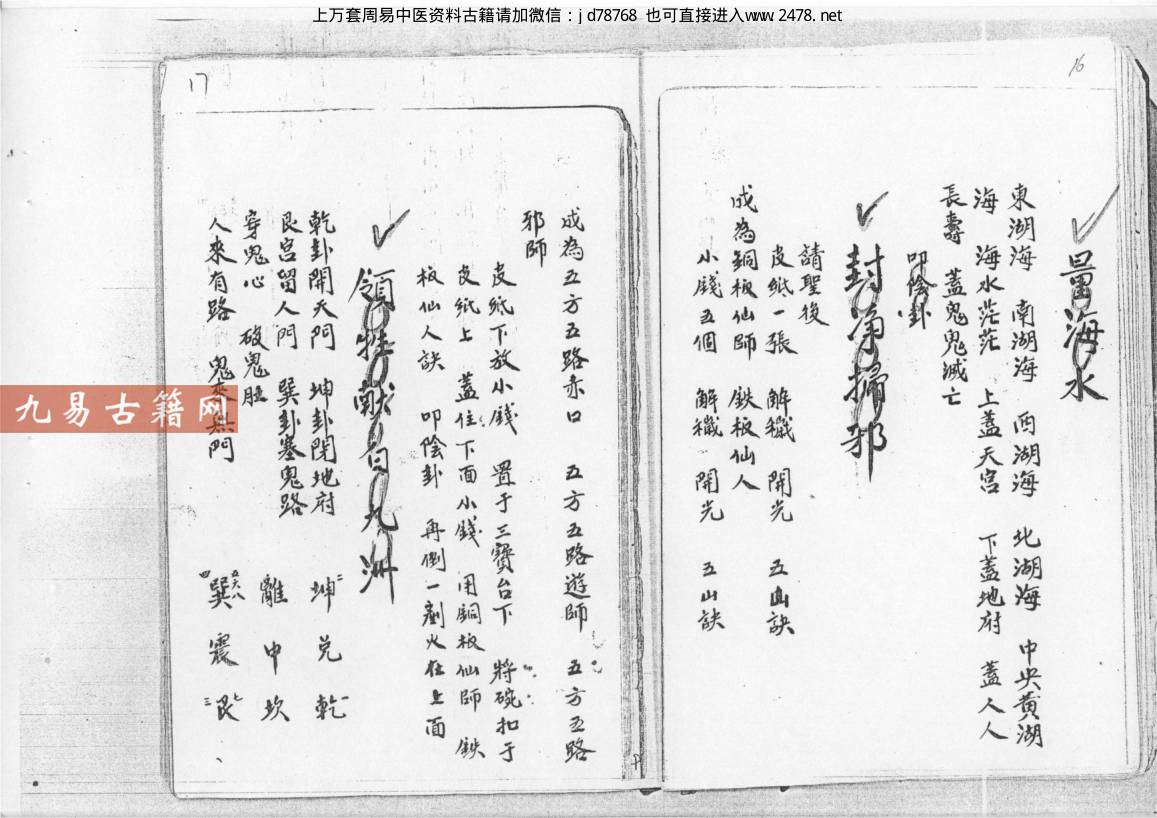 上万套周易中医资料古籍请加微信：jd78768 也可直接进入www.2478.net
16
量海水
東湖海 南湖海 西湖海 北湖海 中央黃湖
海 海水茫茫 上蓋天宮 下蓋地府 蓋人人
長壽 蓋鬼鬼滅亡
叩陰卦
封净掃邪
請聖後
皮紙一張 解穢 開光 五山訣
成為銅板仙師 鉄板仙人
小錢五個 解穢 開光 五山訣
17
成為五方五路赤口 五方五路遊師 五方五路
邪師
皮紙下放小錢 置于三寶台下 將碗扣于
皮紙上 蓋住下面小錢 用銅板仙師 鉄
板仙人訣 叩陰卦 再倒一 火在上面
領牲献白九州
乾卦開天門 坤卦閉地府 坤二 兑 乾一
艮宮留人門 巽卦塞鬼路 離 中 坎
穿鬼心 破鬼肚
人來有路 鬼來無門 四巽 震三 艮
五六八
七
九易古籍网